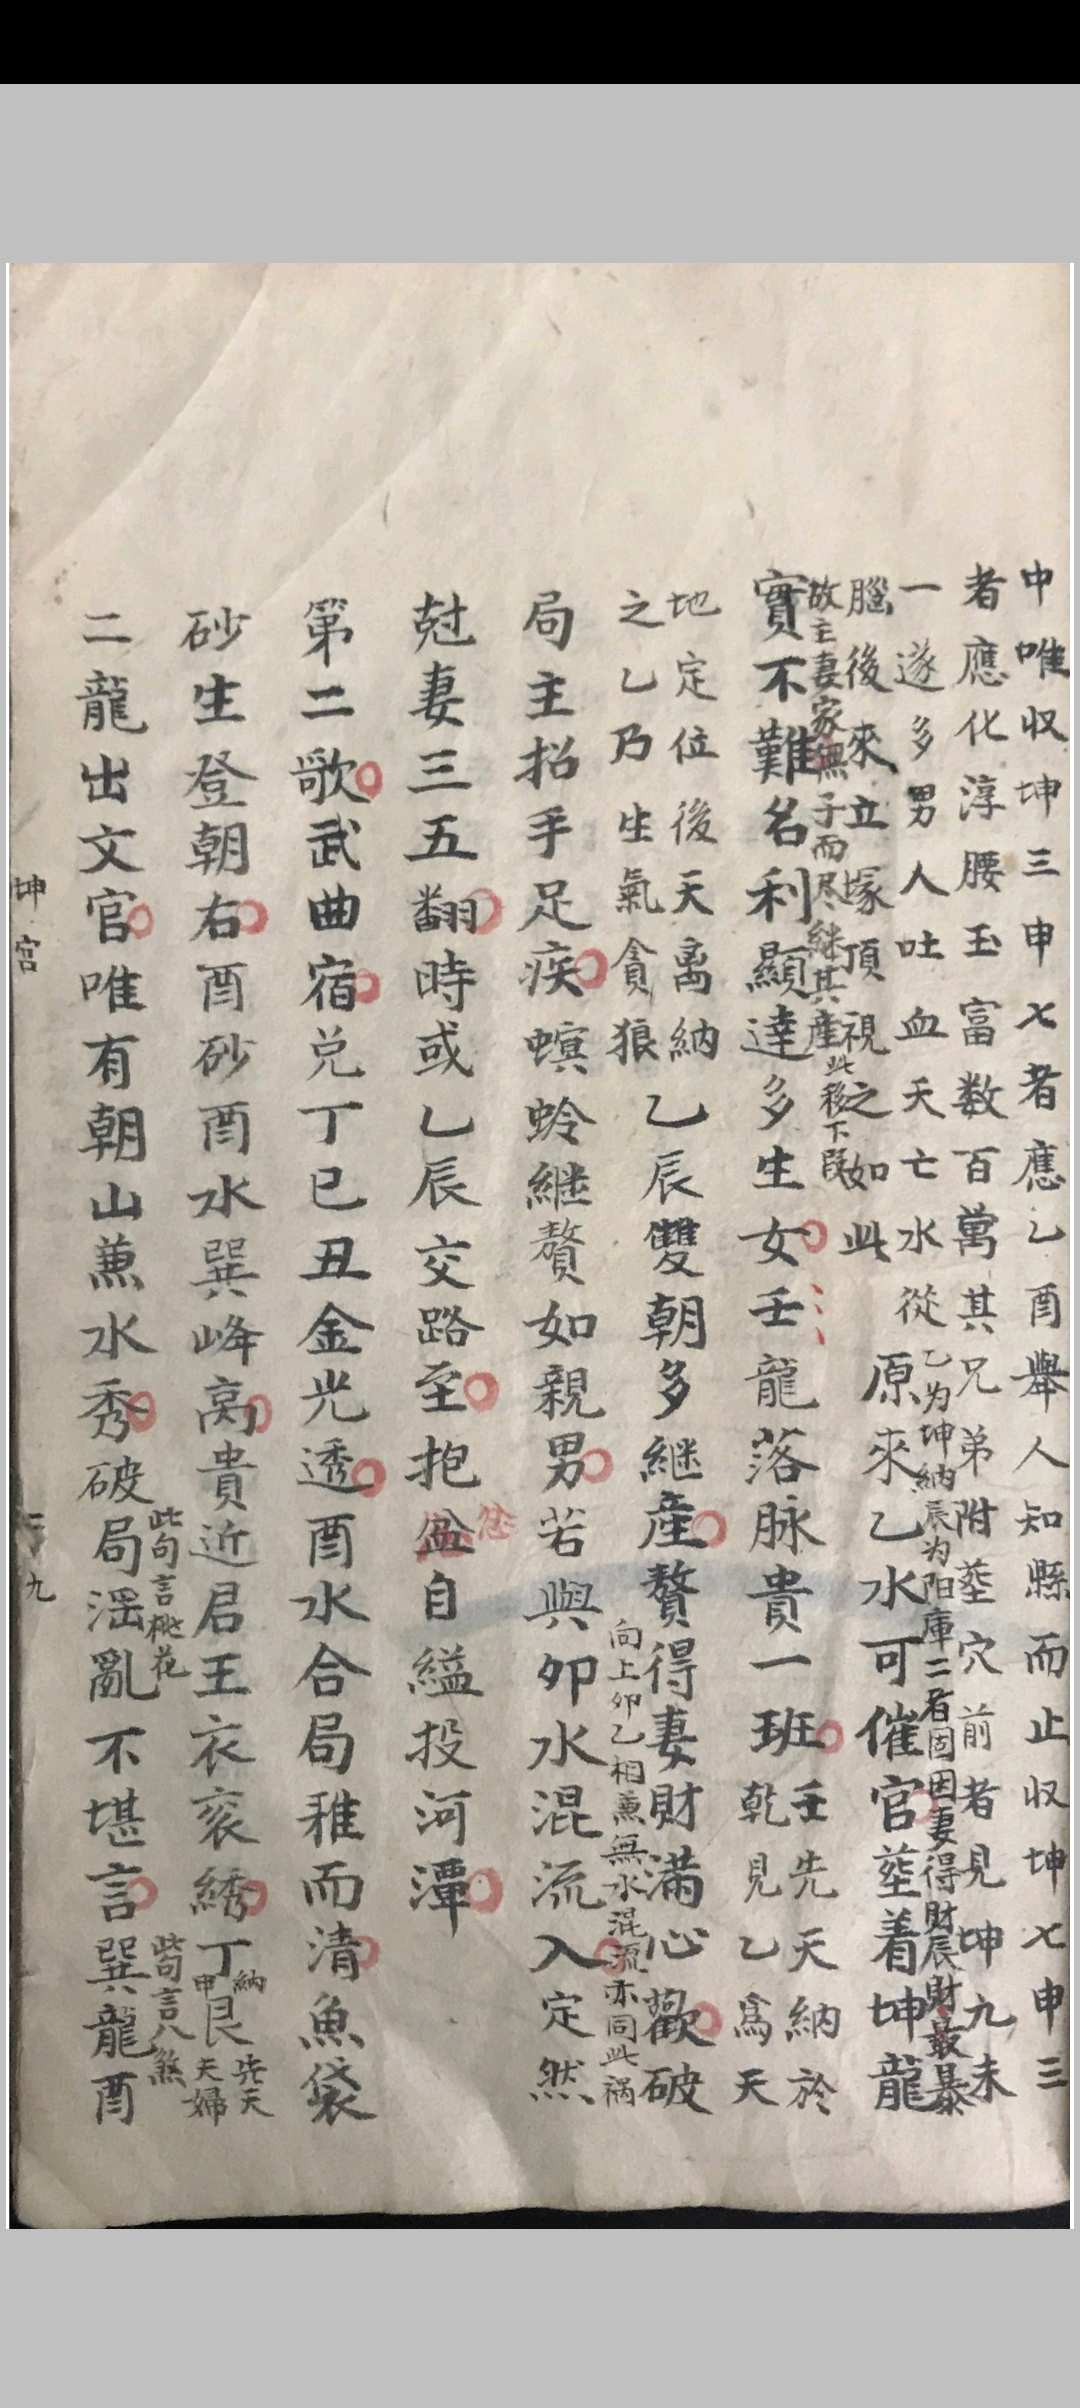 中唯収坤三申七者應乙酉舉人知縣而止収坤七申三
者應化淳腰玉富数百萬其兄弟附塟穴前者見坤九未
一遂多男人吐血夭亡水從
腦後來立塚頂視之如此
原來乙水可催官塟着坤龍
乙为坤納辰为阳庫二者固因妻得財辰財最暴
故主妻家無子而尽継其産此移下段
實不難名利顯達多生女壬龍落脉貴一班
壬先天納於
乾見乙為天
地定位後天离納
之乙乃生氣貪狼
乙辰雙朝多継産贅得妻財满心歡破
向上卯乙相兼無水混流亦同此祸
局主招手足疾螟蛉継贅如親男若與卯水混流入定然
尅妻三五翻時或乙辰交路至抱盆自縊投河潭
第二歌武曲宿兑丁巳丑金光透酉水合局稚而清魚袋
砂生登朝右酉砂酉水巽峰高貴近君王衣衮綉丁艮
納
申
先天
夫婦
二龍出文官唯有朝山兼水秀破局滛亂不堪言巽龍酉
此句言桃花
此句言八煞
坤宫
二九